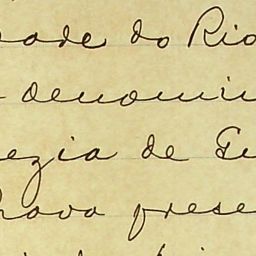 rade do Rio
denomin
ezia de Gu
rava prese